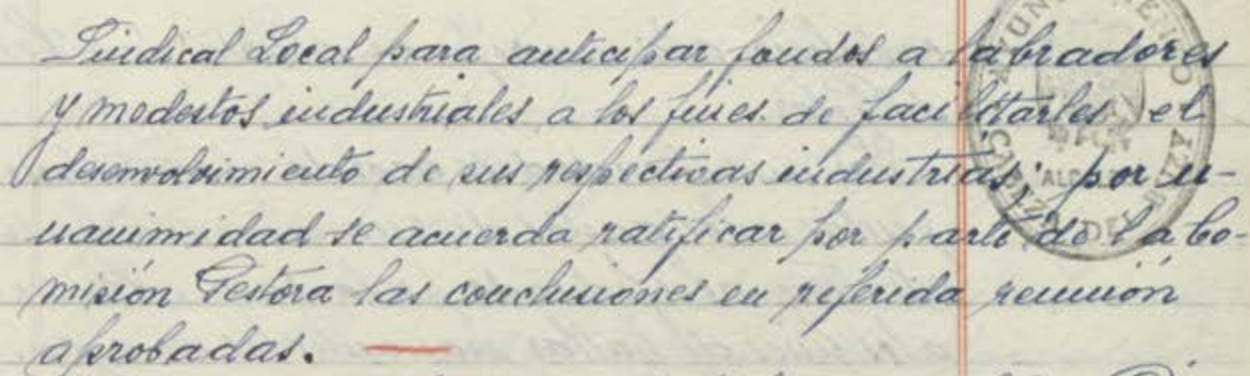 Sindical Local para anticipar fondos a labradores
y modestos industriales a los fines de facilitarles el
desenvolvimiento de sus respectivas industrias, por u-
nanimidad se acuerda ratificar por parte de la Co-
misión Gestora las conclusiones en referida reunión
aprobadas.